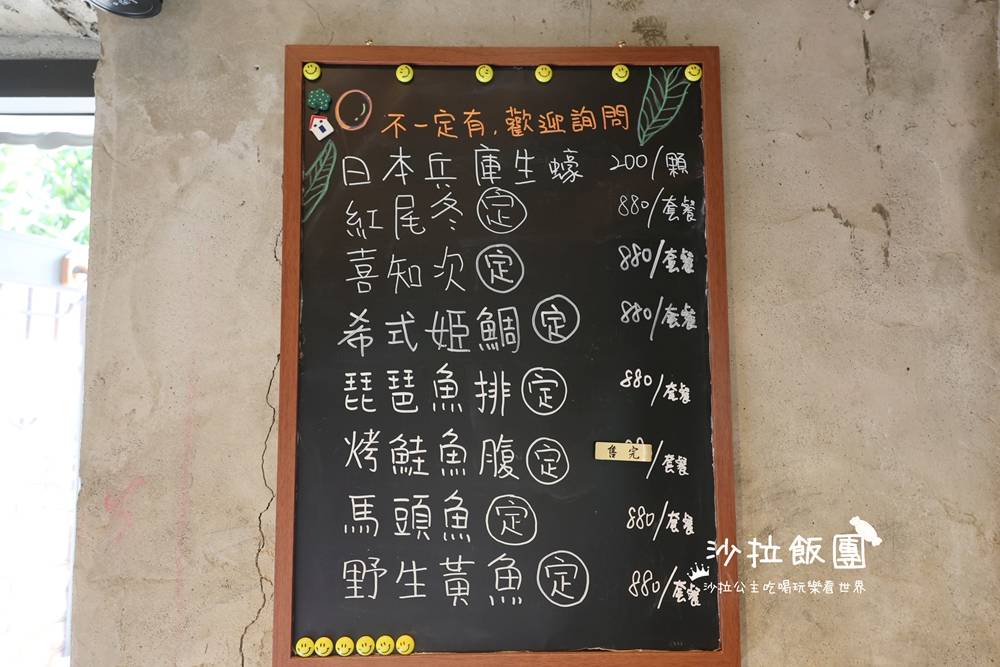 不一定有,歡迎詢問
日本兵庫生蠔 200/顆
紅尾冬 定 880/套餐
喜知次 定 880/套餐
希式姫鯛 定 880/套餐
琵琶魚排 定 880/套餐
烤鮭魚腹 定 售完 /套餐
馬頭魚 定 880/套餐
野生黃魚 定 880/套餐
沙拉飯團
沙拉公主吃喝玩樂看世界